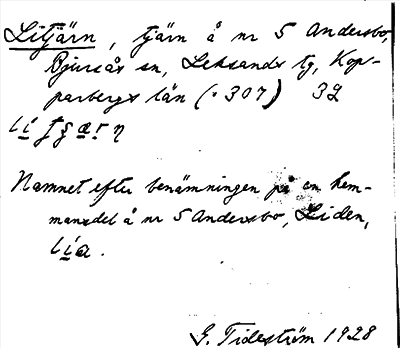 Litjärn, tjärn å nr 5 Andersbo,
Bjursås sn, Leksands tg, Kop-
parbergs län (·307) 32
Namnet efter benämningen på en hem-
mansdel å nr 5 Andersbo, Liden,
lia.
G. Tideström 1928